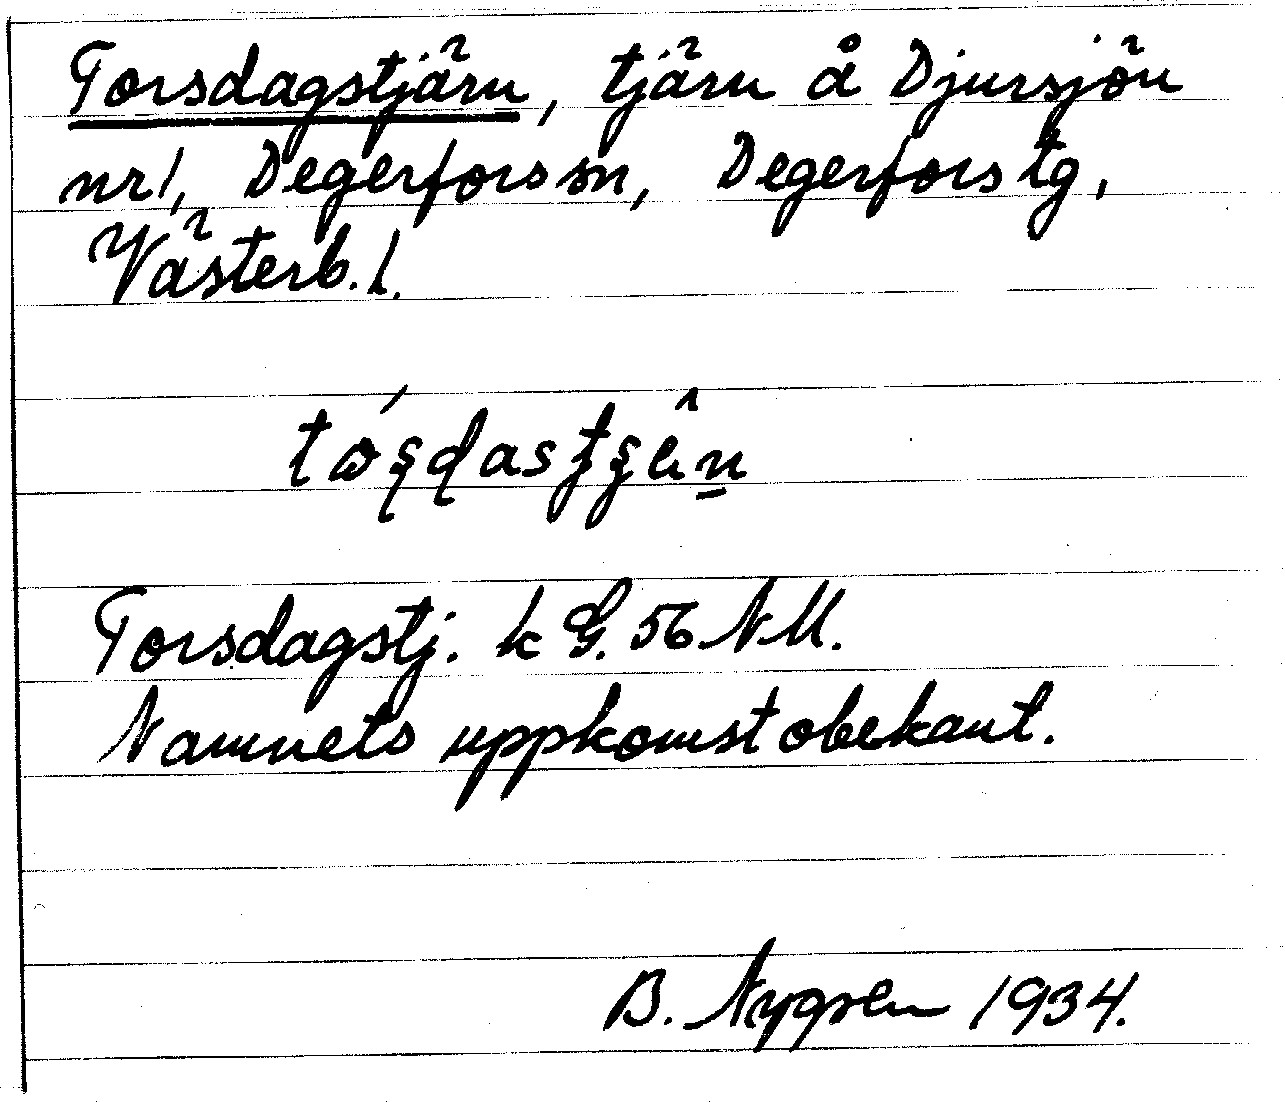 Torsdagstjärn, tjärn å Djursjön
nr 1, Degerfors sn, Degerfors tg,
Västerb. l.
Torsdagstj. k G. 56 NM.
Namnets uppkomst obekant.
B. Nygren 1934.